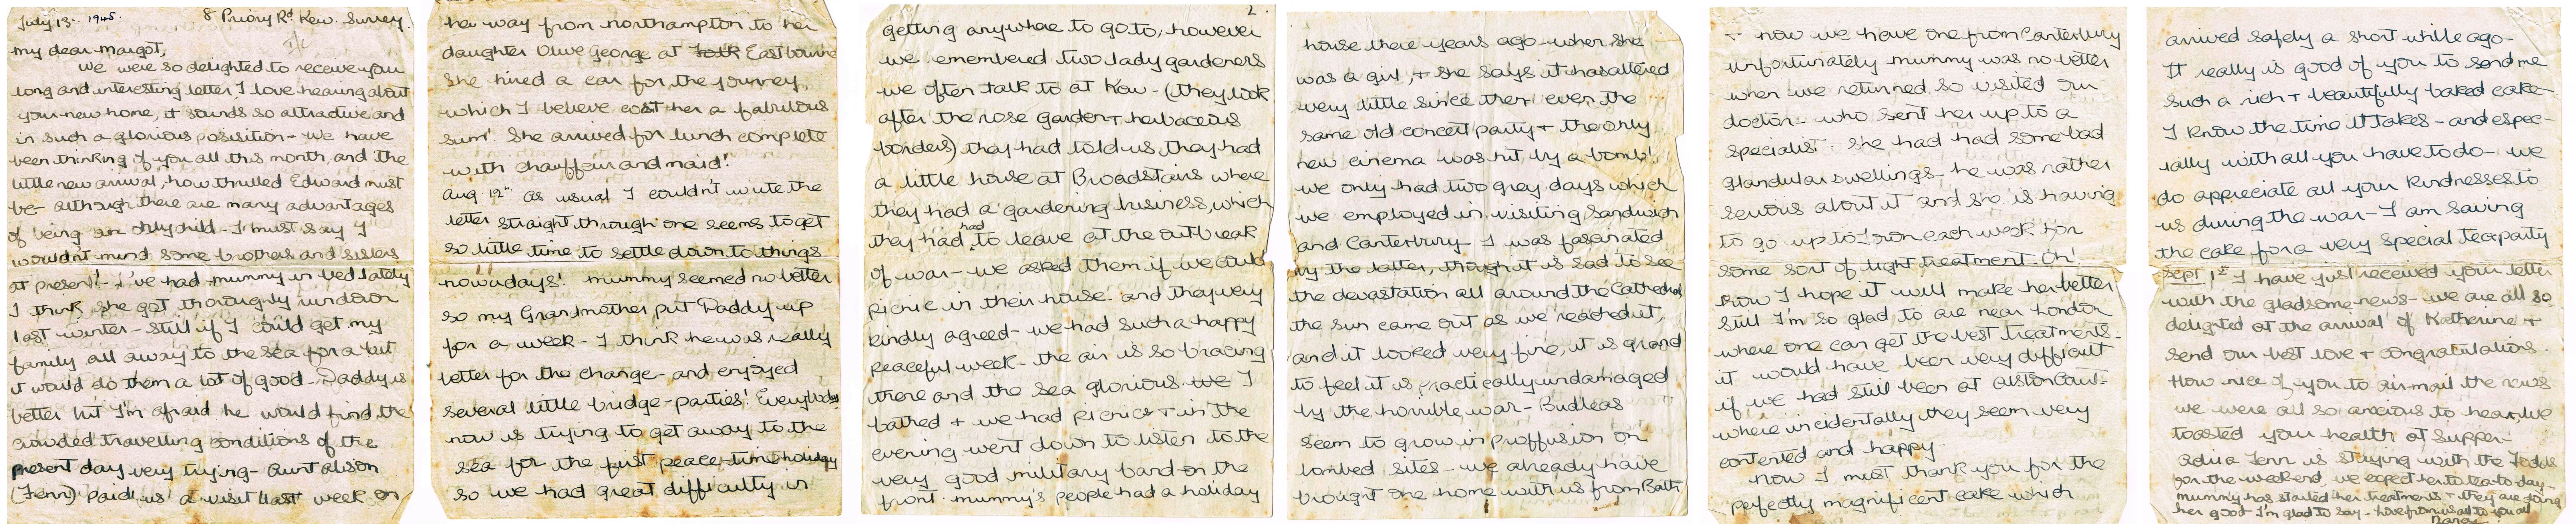 July 13th 1945. 8 Priory Rd. Kew. Surrey.
my dear Margot,
We were so delighted to receive your
long and interesting letter, I love hearing about
your new home, it sounds so attractive and
in such a glorious posisition - We have
been thinking of you all this month, and the
little new arrival, how thrilled Edward must
be - although there are many advantages
of being an only child - I must say I
wouldn't mind some brothers and sisters
at present! - I've had mummy in bed lately
I think she got thoroughly run down
last winter - still if I could get my
family all away to the sea for a bit
it would do them a lot of good - Daddy is
better but I'm afraid he would find the
crowded travelling conditions of the
present day very trying - Aunt Alison
(Fenn) paid us a visit last week on
her way from Northampton to her
daughter Olive George at Eastbourne
She hired a car for the journey,
which I believe cost her a fabulous
sum! She arrived for lunch complete
with chauffeur and maid!
Aug 12th as usual I couldn't write the
letter straight through one seems to get
so little time to settle down to things
nowadays! mummy seemed no better
so my Grandmother put Daddy up
for a week - I think he was really
better for the change - and enjoyed
several little bridge-parties! Everybody
now is trying to get away to the
sea for the first peace-time holiday
so we had great difficulty in
2.
getting anywhere to go to, however
we remembered two lady gardeners
we often talk to at Kew - (they look
after the rose garden + herbaceous
borders) they had told us they had
a little house at Broadstairs where
they had a gardering business, which
they had had to leave at the outbreak
of war - we asked them if we could
picnic in their house and they very
kindly agreed - we had such a happy
peaceful week - the air is so bracing
there and the sea glorious. we I
bathed + we had picnics + in the
evening went down to listen to the
very good military band on the
front. mummy's people had a holiday
house there years ago - when she
was a girl, + she says it has altered
very little since then even the
same old concert party + the only
new cinema was hit by a bomb!
we only had two grey days which
we employed in visiting Sandwich
and Canterbury I was fascinated
by the latter, though it is sad to see
the devastation all around the Cathedral
the sun came out as we reached it,
and it looked very fine, it is grand
to feel it is practically undamaged
by the horrible war - Budleas
seem to grow in proffusion on
bombed sites - we already have
brought one home with us from Bath
+ now we have one from Canterbury
unfortunately mummy was no better
when we returned so visited our
doctor - who sent her up to a
specialist. she had had some bad
glandular swellings - he was rather
serious about it and she is having
to go up to Lon each week for
some sort of light treatment - Oh!
how I hope it will make her better
still I'm so glad to are near London
where one can get the best treatments -
it would have been very difficult
if we had still been at Alston Court -
where incidentally they seem very
contented and happy.
Now I must thank you for the
perfectly magnificent cake which
arrived safely a short while ago -
It really is good of you to send me
such a rich + beautifully baked cake
I know the time it takes - and espec-
ially with all you have to do - we
do appreciate all your kindnesses to
us during the war - I am saving
the cake for a very special tea party
Sept 1st I have just received your letter
with the gladsome news - we are all so
delighted at the arrival of Katherine +
send our best love + congratulations.
How nice of you to air-mail the news
we were all so anxious to hear, we
toasted your health at supper -
Adria Fenn is staying with the Todds
for the week-end, we expect her to tea to-day -
mummy has started her treatments + they are doing
her good I'm glad to say - love from us all to you all